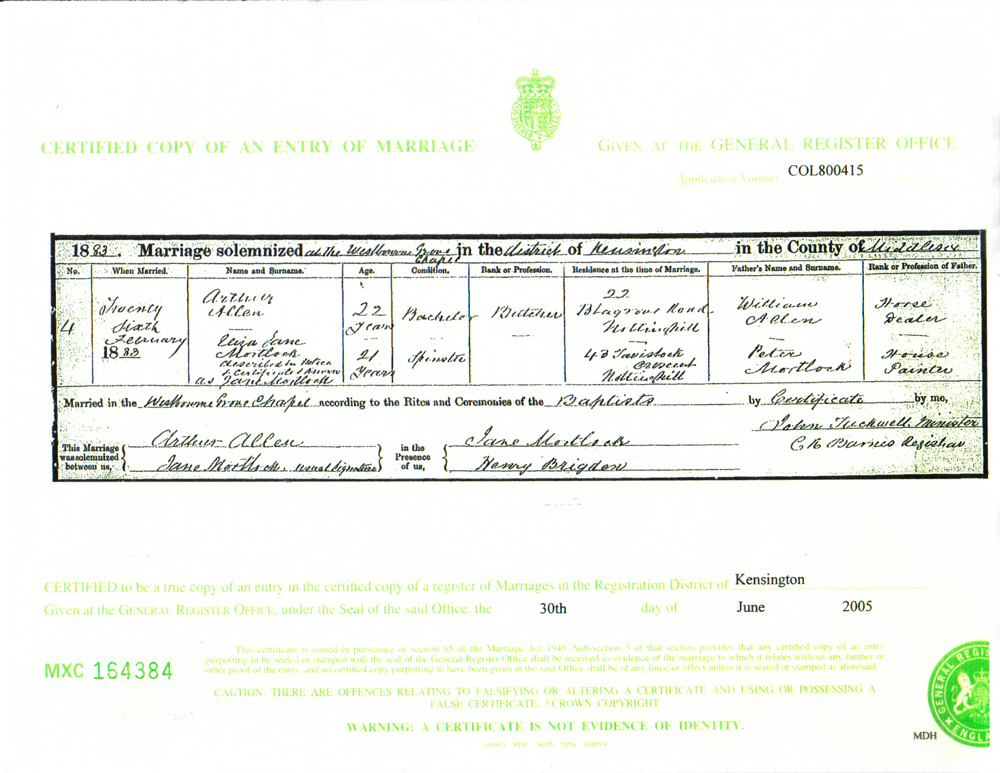 CERTIFIED COPY OF AN ENTRY OF MARRIAGE
GIVEN AT THE GENERAL REGISTER OFFICE
Application Number COL800415
1883. Marriage solemnized at the Westbourne Grove Chapel in the district of Kensington in the County of Middlesex
No. When Married. Name and Surname. Age. Condition. Rank or Profession. Residence at the time of Marriage. Father's Name and Surname. Rank or Profession of Father.
4 Twenty Sixth February 1883
Arthur Allen 22 Years Bachelor Butcher 22 Blagrove Road Nottinghill William Allen Horse Dealer
Eliza Jane Mortlock described in Notice & Certificate & known as Jane Mortlock 21 Years Spinster 43 Tavistock Crescent Nottinghill Peter Mortlock House Painter
Married in the Westbourne Grove Chapel according to the Rites and Ceremonies of the Baptists by Certificate by me,
John Tuckwell Minister
C R Barnes Registrar
This Marriage was solemnized between us, Arthur Allen
Jane Mortlock, usual signature
in the Presence of us, Jane Mortlock
Henry Brigden
CERTIFIED to be a true copy of an entry in the certified copy of a register of Marriages in the Registration District of Kensington
Given at the GENERAL REGISTER OFFICE, under the Seal of the said Office, the 30th day of June 2005
MXC 164384
This certificate is issued in pursuance of section 65 of the Marriage Act 1949. Sub-section 3 of that section provides that any certified copy of an entry
purporting to be sealed or stamped with the seal of the General Register Office shall be received as evidence of the marriage to which it relates without any further or
other proof of the entry, and no certified copy purporting to have been given in the said Office shall be of any force or effect unless it is sealed or stamped as aforesaid.
CAUTION: THERE ARE OFFENCES RELATING TO FALSIFYING OR ALTERING A CERTIFICATE AND USING OR POSSESSING A
FALSE CERTIFICATE. ©CROWN COPYRIGHT
WARNING: A CERTIFICATE IS NOT EVIDENCE OF IDENTITY.
GENERAL REGIS
ENGLA
MDH